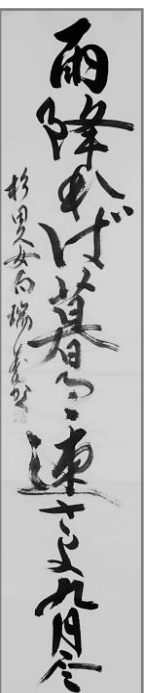 雨降れば暮るゝ速さよ九月尽
杉田久女句 瑞